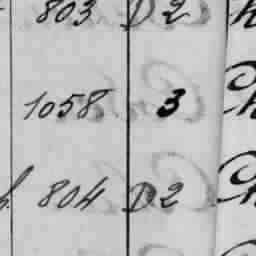 803 D 2
1058 3
h. 804 D 2